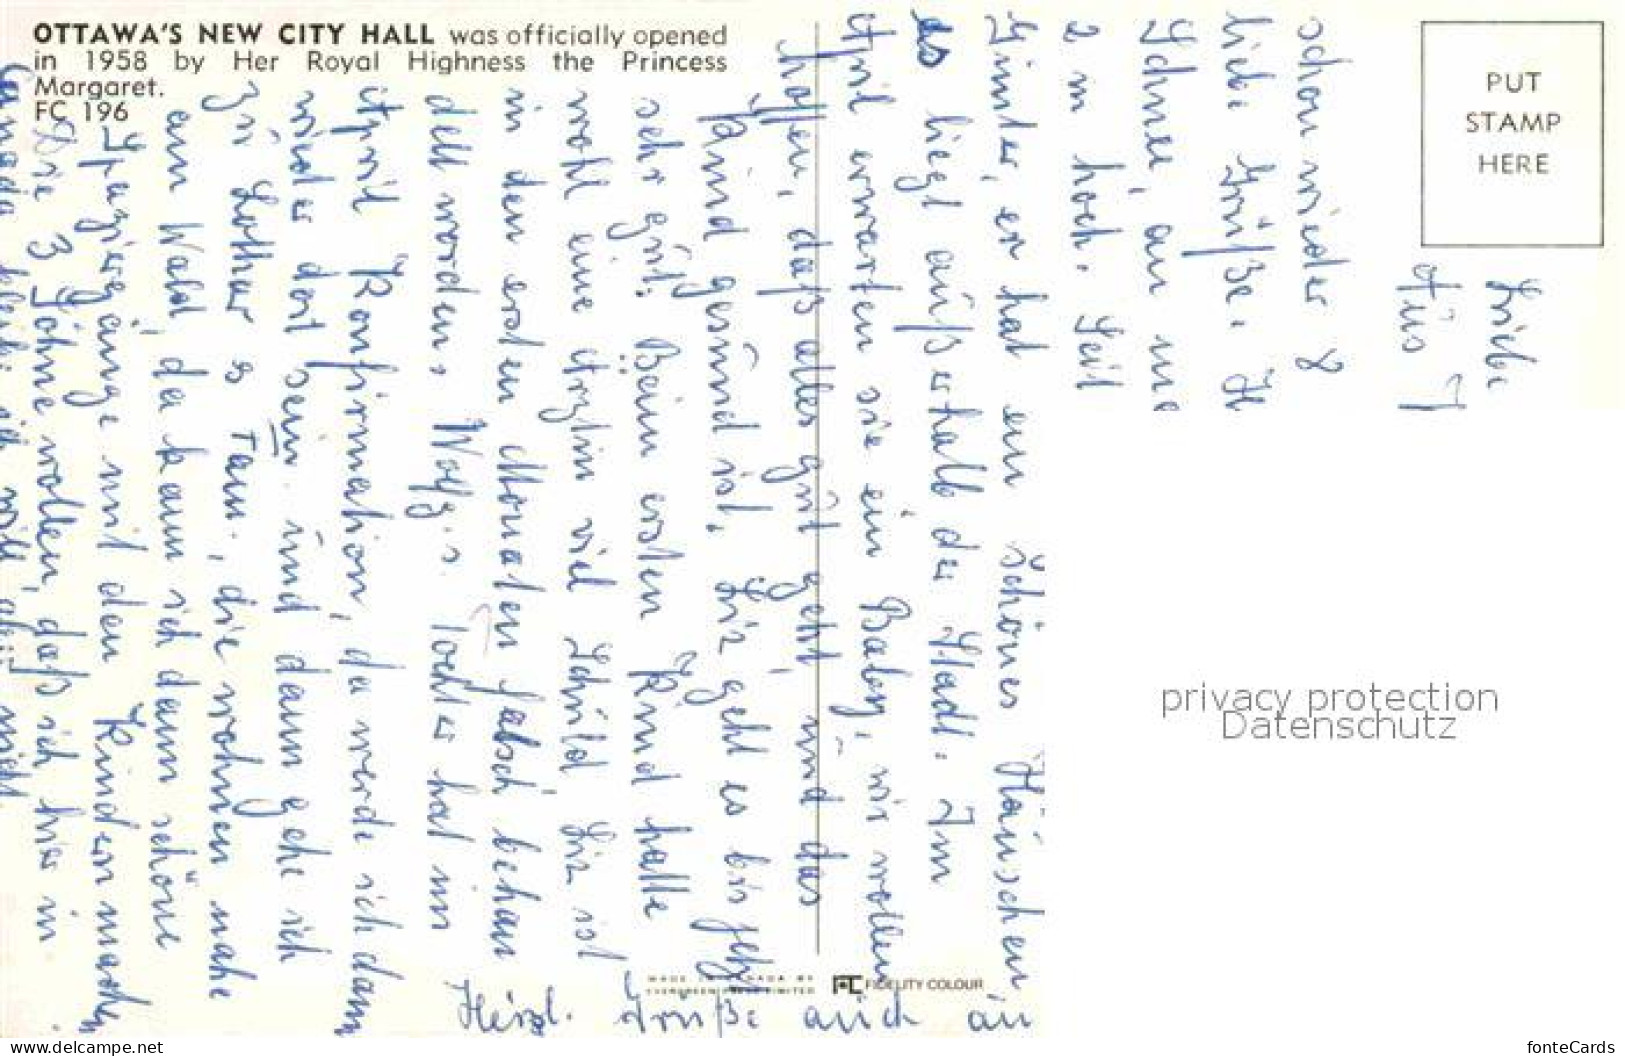 OTTAWA'S NEW CITY HALL was officially opened
in 1958 by Her Royal Highness the Princess
Margaret.
FC 196
PUT
STAMP
HERE
Liebe
Aus
schon wieder
liebe Grüße.
Schnee, an
2 m hoch. Seit
Günter, er hat ein schönes Häuschen
es liegt außerhalb der Stadt. Im
April erwarten sie ein Baby, wir wollen
hoffen, daß alles gut geht und das
Kind gesund ist. Liz geht es bis jetzt
sehr gut. Beim ersten Kind hatte
wohl eine Ärztin viel Schuld Liz ist
in den ersten Monaten falsch behan
delt worden. Wolfg.s. Tochter hat im
April Konfirmation, da werde ich dann
wieder dort sein und dann gehe ich
zu Lothar s Fam., die wohnen nahe
am Wald, da kann ich dann schöne
Spaziergänge mit den Kindern machen
Die 3 Söhne wollen, daß ich hier in
Canada bleibe ich will aber nicht
Herzl. Grüße auch an
MADE IN CANADA BY
EVERGREEN PRESS LIMITED
FC FIDELITY COLOUR
privacy protection
Datenschutz
www.delcampe.net
fonteCards